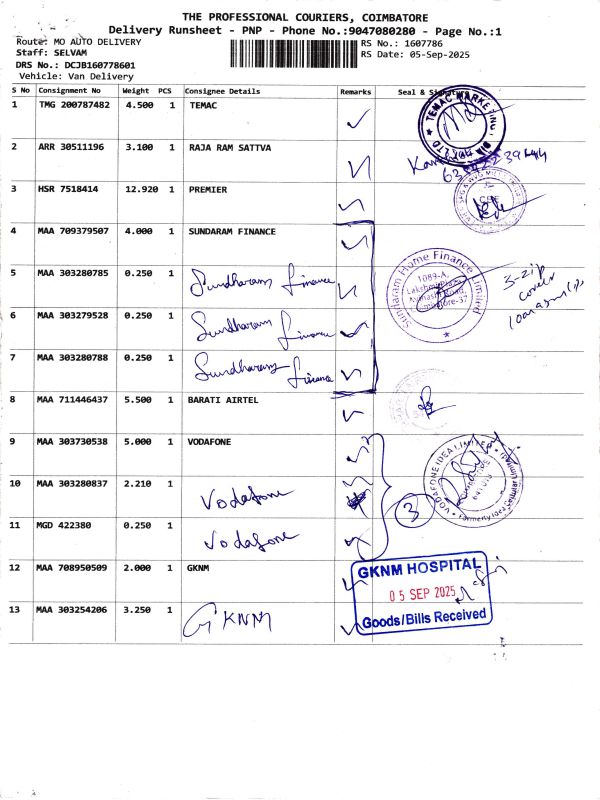 THE PROFESSIONAL COURIERS, COIMBATORE
Delivery Runsheet - PNP - Phone No.:9047080280 - Page No.:1
Route: MO AUTO DELIVERY
Staff: SELVAM
DRS No.: DCJB160778601
Vehicle: Van Delivery
RS No.: 1607786
RS Date: 05-Sep-2025
S No Consignment No Weight PCS Consignee Details Remarks Seal &
1 TMG 200787482 4.500 1 TEMAC
TEMAC MARKETING
2 ARR 30511196 3.100 1 RAJA RAM SATTVA
3 HSR 7518414 12.920 1 PREMIER
4 MAA 709379507 4.000 1 SUNDARAM FINANCE
5 MAA 303280785 0.250 1 Sundharam Finance
Sundaram Home Finance Limited
1089-A,
3-zip
cover
6 MAA 303279528 0.250 1 Sundharam Finance
7 MAA 303280788 0.250 1 Sundharam Finance
8 MAA 711446437 5.500 1 BARATI AIRTEL
9 MAA 303730538 5.000 1 VODAFONE
VODAFONE IDEA LIMITED
10 MAA 303280837 2.210 1 Vodafone
3
11 MGD 422380 0.250 1 Vodafone
12 MAA 708950509 2.000 1 GKNM
GKNM HOSPITAL
05 SEP 2025
Goods/Bills Received
13 MAA 303254206 3.250 1 GKNM